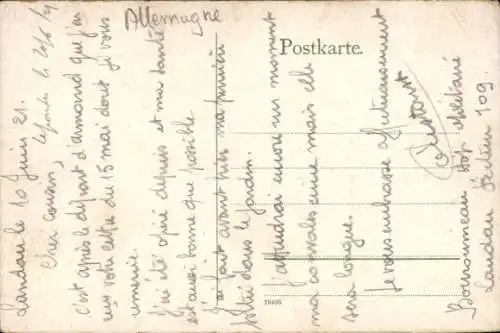 Allemagne
Postkarte.
Landau le 10 Juin 21.
Cher Cousin,
c'est après le départ d'Armand que j'ai
reçu votre lettre du 15 mai dont je vous
remercie.
J'ai été opéré depuis et ma santé
est aussi bonne que possible
J'ai fait avant hier ma première
sortie dans le jardin.
J'attendrai encore un moment
ma convalescence mais elle
sera longue.
Je vous embrasse affectueusement
Boursonneau Hôp. Militaire
Landau Secteur 109.